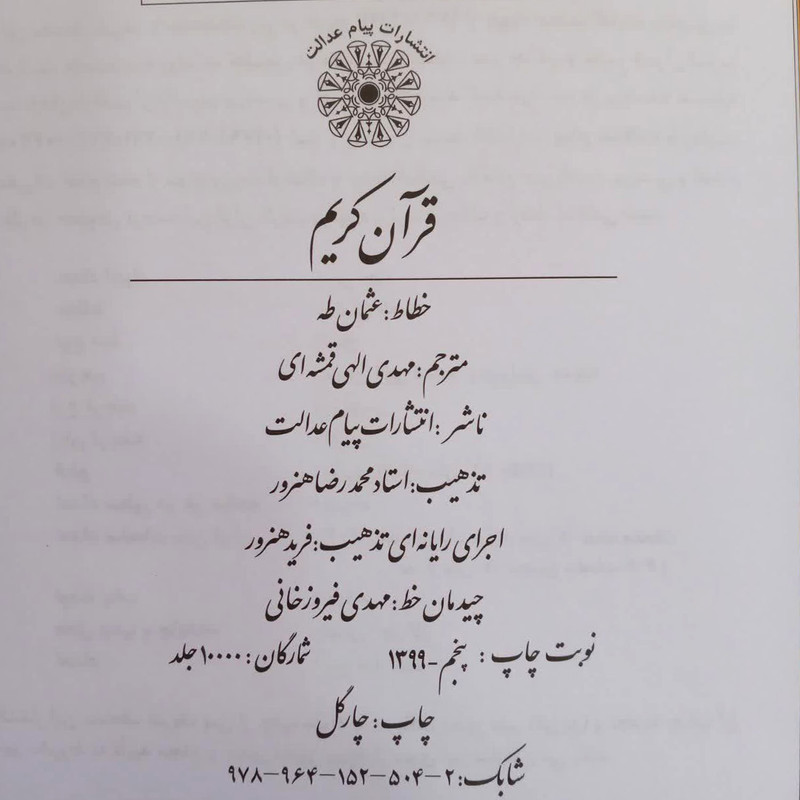 انتشارات پیام عدالت
قرآن کریم
خطاط: عثمان طه
مترجم: مهدی الهی قمشه ای
ناشر: انتشارات پیام عدالت
تذهیب: استاد محمدرضا هنرور
اجرای رایانه ای تذهیب: فرید هنرور
چیدمان خط: مهدی فیروزخانی
نوبت چاپ: پنجم - ۱۳۹۹ شمارگان: ۱۰۰۰۰ جلد
چاپ: چارگل
شابک: ۲-۵۰۴-۱۵۲-۹۶۴-۹۷۸